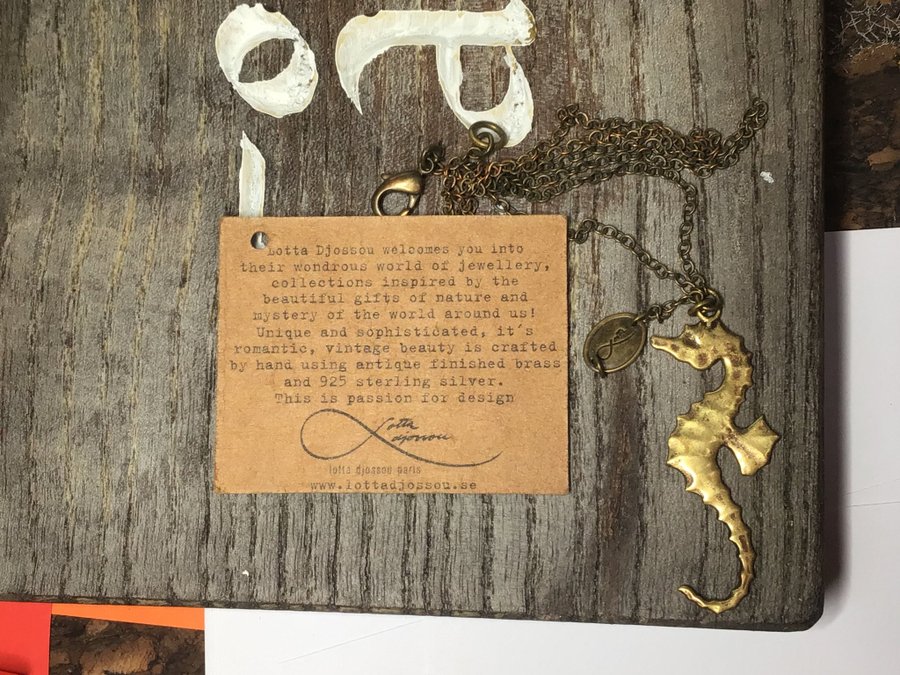 Lotta Djossou welcomes you into
their wondrous world of jewellery,
collections inspired by the
beautiful gifts of nature and
mystery of the world around us!
Unique and sophisticated, it's
romantic, vintage beauty is crafted
by hand using antique finished brass
and 925 sterling silver.
This is passion for design
lotta
djossou
lotta djossou paris
www.lottadjossou.se